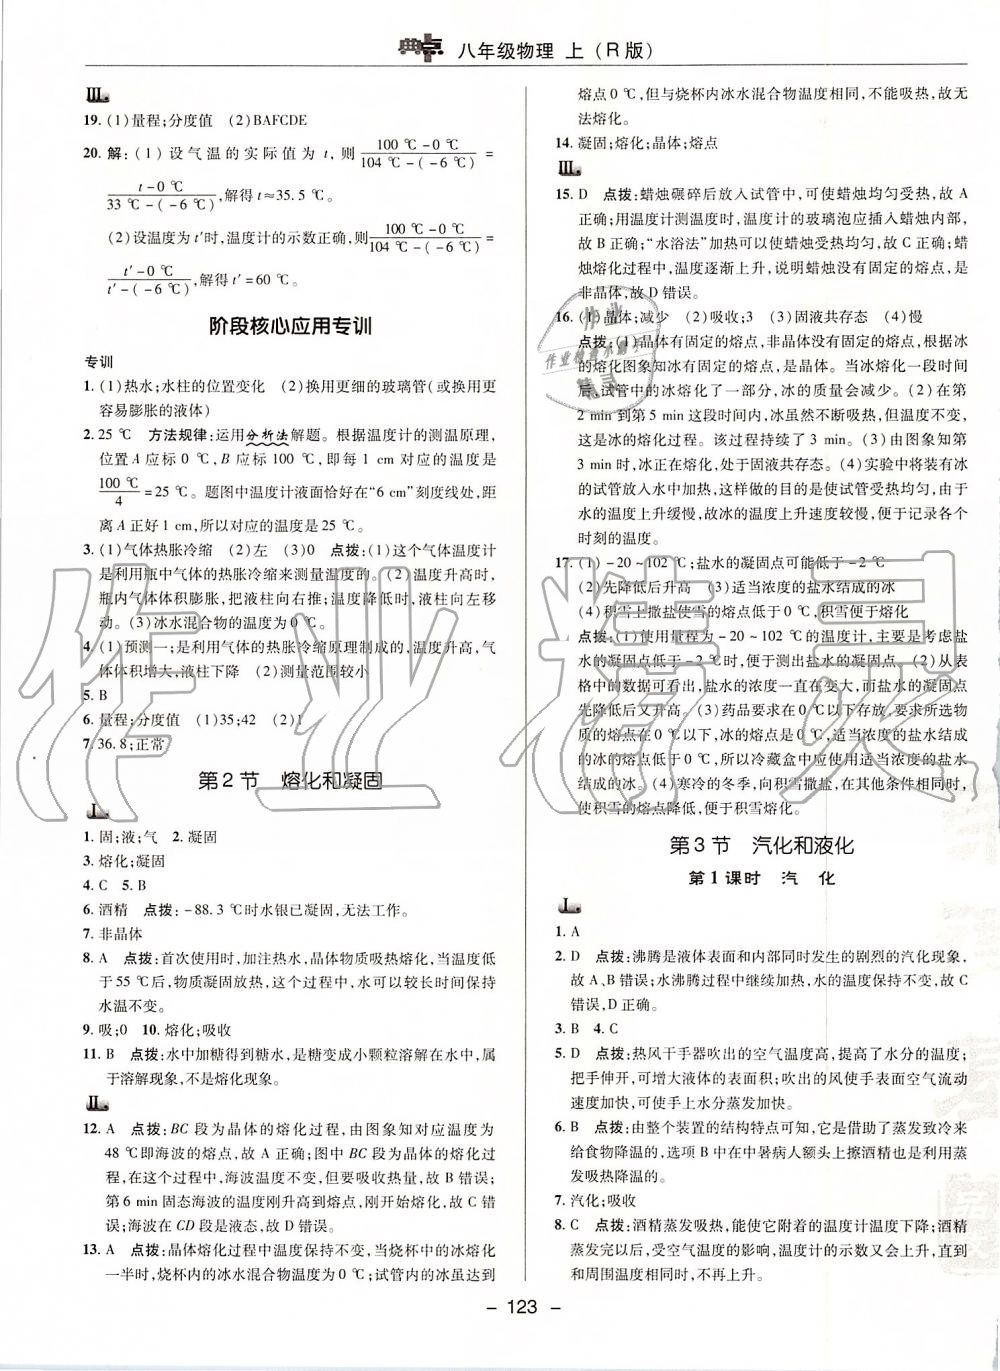 典点 八年级物理 上(R版)
Ⅲ.
19. (1)量程;分度值 (2)BAFCDE
20. 解:(1)设气温的实际值为 t,则 (100 ℃-0 ℃)/(104 ℃-(-6 ℃)) =
(t-0 ℃)/(33 ℃-(-6 ℃)),解得 t≈35.5 ℃。
(2)设温度为 t′时,温度计的示数正确,则 (100 ℃-0 ℃)/(104 ℃-(-6 ℃)) =
(t′-0 ℃)/(t′-(-6 ℃)),解得 t′=60 ℃。
阶段核心应用专训
专训
1. (1)热水;水柱的位置变化 (2)换用更细的玻璃管(或换用更
容易膨胀的液体)
2. 25 ℃ 方法规律:运用分析法解题。根据温度计的测温原理,
位置 A 应标 0 ℃,B 应标 100 ℃,即每 1 cm 对应的温度是
100 ℃/4 =25 ℃。题图中温度计液面恰好在“6 cm”刻度线处,距
离 A 正好 1 cm,所以对应的温度是 25 ℃。
3. (1)气体热胀冷缩 (2)左 (3)0 点拨:(1)这个气体温度计
是利用瓶中气体的热胀冷缩来测量温度的。(2)温度升高时,
瓶内气体体积膨胀,把液柱向右推;温度降低时,液柱向左移
动。(3)冰水混合物的温度为 0 ℃。
4. (1)预测一;是利用气体的热胀冷缩原理制成的,温度升高,气
体体积增大,液柱下降 (2)测量范围较小
5. B
6. 量程;分度值 (1)35;42 (2)1
7. 36.8;正常
第 2 节 熔化和凝固
Ⅰ.
1. 固;液;气 2. 凝固
3. 熔化;凝固
4. C 5. B
6. 酒精 点拨:-88.3 ℃时水银已凝固,无法工作。
7. 非晶体
8. A 点拨:首次使用时,加注热水,晶体物质吸热熔化,当温度低
于 55 ℃后,物质凝固放热,这个过程中,水可以较长时间保持
水温不变。
9. 吸;0 10. 熔化;吸收
11. B 点拨:水中加糖得到糖水,是糖变成小颗粒溶解在水中,属
于溶解现象,不是熔化现象。
Ⅱ.
12. A 点拨:BC 段为晶体的熔化过程,由图象知对应温度为
48 ℃即海波的熔点,故 A 正确;图中 BC 段为晶体的熔化过
程,在这个过程中,海波温度不变,但要吸收热量,故 B 错误;
第 6 min 固态海波的温度刚升高到熔点,刚开始熔化,故 C 错
误;海波在 CD 段是液态,故 D 错误。
13. A 点拨:晶体熔化过程中温度保持不变,当烧杯中的冰熔化
一半时,烧杯内的冰水混合物温度为 0 ℃;试管内的冰虽达到
熔点 0 ℃,但与烧杯内冰水混合物温度相同,不能吸热,故无
法熔化。
14. 凝固;熔化;晶体;熔点
Ⅲ.
15. D 点拨:蜡烛碾碎后放入试管中,可使蜡烛均匀受热,故 A
正确;用温度计测温度时,温度计的玻璃泡应插入蜡烛内部,
故 B 正确;“水浴法”加热可以使蜡烛受热均匀,故 C 正确;蜡
烛熔化过程中,温度逐渐上升,说明蜡烛没有固定的熔点,是
非晶体,故 D 错误。
16. (1)晶体;减少 (2)吸收;3 (3)固液共存态 (4)慢
点拨:(1)晶体有固定的熔点,非晶体没有固定的熔点,根据冰
的熔化图象知冰有固定的熔点,是晶体。当冰熔化一段时间
后,试管中的冰熔化了一部分,冰的质量会减少。(2)在第
2 min 到第 5 min 这段时间内,冰虽然不断吸热,但温度不变,
这是冰的熔化过程。该过程持续了 3 min。(3)由图象知第
3 min时,冰正在熔化,处于固液共存态。(4)实验中将装有冰
的试管放入水中加热,这样做的目的是使试管受热均匀,由于
水的温度上升缓慢,故冰的温度上升速度较慢,便于记录各个
时刻的温度。
17. (1)-20~102 ℃;盐水的凝固点可能低于-2 ℃
(2)先降低后升高 (3)适当浓度的盐水结成的冰
(4)积雪上撒盐使雪的熔点低于 0 ℃,积雪便于熔化
点拨:(1)使用量程为-20~102 ℃的温度计,主要是考虑盐
水的凝固点低于-2 ℃时,便于测出盐水的凝固点。(2)从表
格中的数据可看出,盐水的浓度一直在变大,而盐水的凝固点
先降低后又升高。(3)药品要求在 0 ℃以下存放,要求所选物
质的熔点在 0 ℃以下,冰的熔点是 0 ℃,适当浓度的盐水结成
的冰的熔点低于 0 ℃,所以冷藏盒中应放入适当浓度的盐水
结成的冰。(4)寒冷的冬季,向积雪撒盐,在其他条件相同时,
使积雪的熔点降低,便于积雪熔化。
第 3 节 汽化和液化
第 1 课时 汽 化
Ⅰ.
1. A
2. D 点拨:沸腾是液体表面和内部同时发生的剧烈的汽化现象,
故 A、B 错误;水沸腾过程中继续加热,水的温度保持不变,故 C
错误,D 正确。
3. B 4. C
5. D 点拨:热风干手器吹出的空气温度高,提高了水分的温度;
把手伸开,可增大液体的表面积;吹出的风使手表面空气流动
速度加快,可使手上水分蒸发加快。
6. B 点拨:由整个装置的结构特点可知,此做法利用了蒸发致冷来
给食物降温的,选项 B 中在中暑病人额头上擦酒精也是利用蒸
发吸热降温的。
7. 汽化;吸收
8. C 点拨:酒精蒸发吸热,能使它附着的温度计温度下降;酒精
蒸发完以后,受空气温度的影响,温度计的示数又会上升,直到
和周围温度相同时,不再上升。
- 123 -
作业精灵
作业
作业检查小助手
精灵